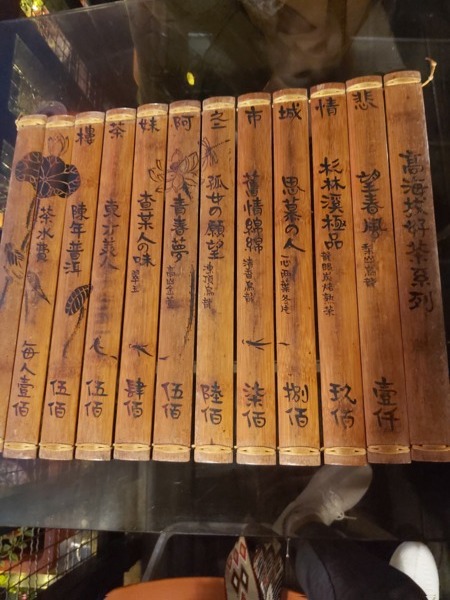 高海拔好茶系列
悲情城市之阿妹茶樓
望春風 梨山烏龍 壹仟
杉林溪極品 龍眼炭焙熟茶 玖佰
思慕の人 一心兩葉冬片 捌佰
舊情綿綿 清香烏龍 柒佰
孤女の願望 凍頂烏龍 陸佰
青春夢 高山金萱 伍佰
查某人の味 翠玉 肆佰
東方美人 伍佰
陳年普洱 伍佰
茶水費 每人壹佰